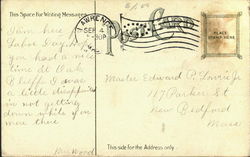 This Space For Writing Messages
Post Card
LAWRENCE
SEP 4
PLACE
STAMP HERE
I am here
Labor Day. Hope
you had a nice
time at Oak
Bluffs. I was
a little disappointed
in not getting
down while you
were there
Master Edward P. Lowrie Jr
117 Parker St
New Bedford
Mass
This side for the Address only